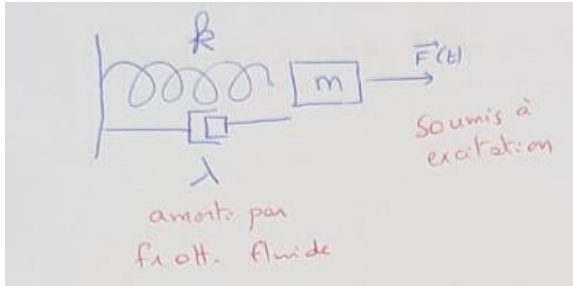 k
m
F(t)
λ
Soumis à
excitation
amorti par
frott. fluide